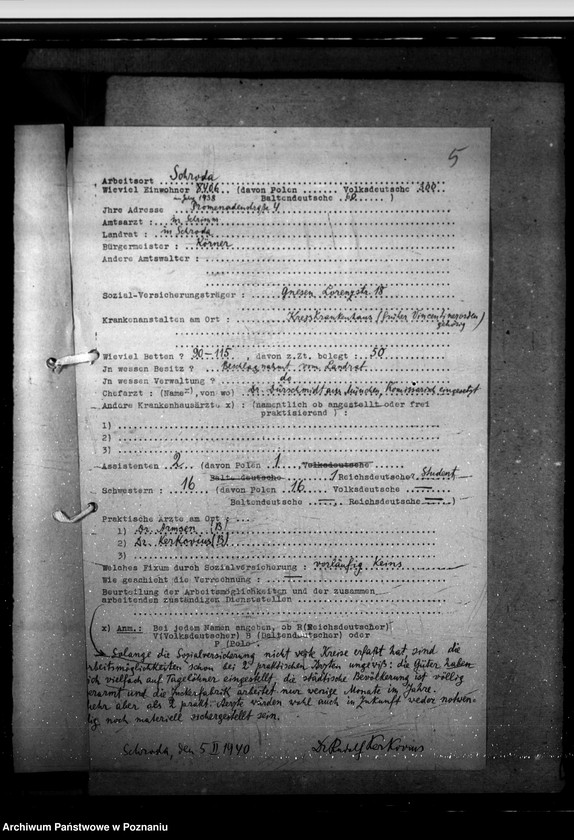 5
Arbeitsort Schroda
Wieviel Einwohner (davon Polen Volksdeutsche
1938 Baltendeutsche )
Jhre Adresse Promenadenstraße 4
Amtsarzt : in Schrimm
Landrat : in Schroda
Bürgermeister : Körner
Andere Amtswalter :
Sozial-Versicherungsträger : Gnesen Lorenzstr. 18
Krankenanstalten am Ort : Kreiskrankenhaus (früher Vincentinerorden
gehörig)
Wieviel Betten ? 90-115 , davon z.Zt. belegt : 50
Jn wessen Besitz ? Beschlagnahmt vom Landrat
Jn wessen Verwaltung ? do
Chefarzt : (Name ,von wo) Dr. aus München, Komissarisch eingesetzt
Andere Krankenhausärzte x) : (namentlich ob angestellt oder frei
praktisierend ) :
1)
2)
3)
Assistenten 2 (davon Polen 1 Volksdeutsche
Balte deutsche 1 Reichsdeutsche? Student
Schwestern : 16 (davon Polen 16 Volksdeutsche —
Baltendeutsche — Reichsdeutsche — )
Praktische Ärzte am Ort :
1) Dr. (B)
2) Dr. Kerkovius (B)
3)
Welches Fixum durch Sozialversicherung : vorläufig Keins
Wie geschieht die Verrechnung : —
Beurteilung der Arbeitsmöglichkeiten und der zusammen
arbeitenden zuständigen Dienststellen
x) Anm.: Bei jedem Namen angeben, ob R(Reichsdeutscher)
V(Volksdeutscher) B (Baltendeutscher) oder
P (Pole
Solange die Sozialversicherung nicht Kreise erfaßt hat sind die
Arbeitsmöglichkeiten schon bei 2 praktischen Ärzten ungewiß: die Güter haben
sich vielfach auf Tagelöhner eingestellt, die städtische Bevölkerung ist völlig
verarmt und die Zuckerfabrik arbeitet nur wenige Monate im Jahre.
Mehr aber als 2 prakt. Ärzte würden wohl auch in Zukunft weder notwen-
dig noch materiell sichergestellt sein.
Schroda, den 5 II 1940 Dr Rudolf Kerkovius
Archiwum Państwowe w Poznaniu